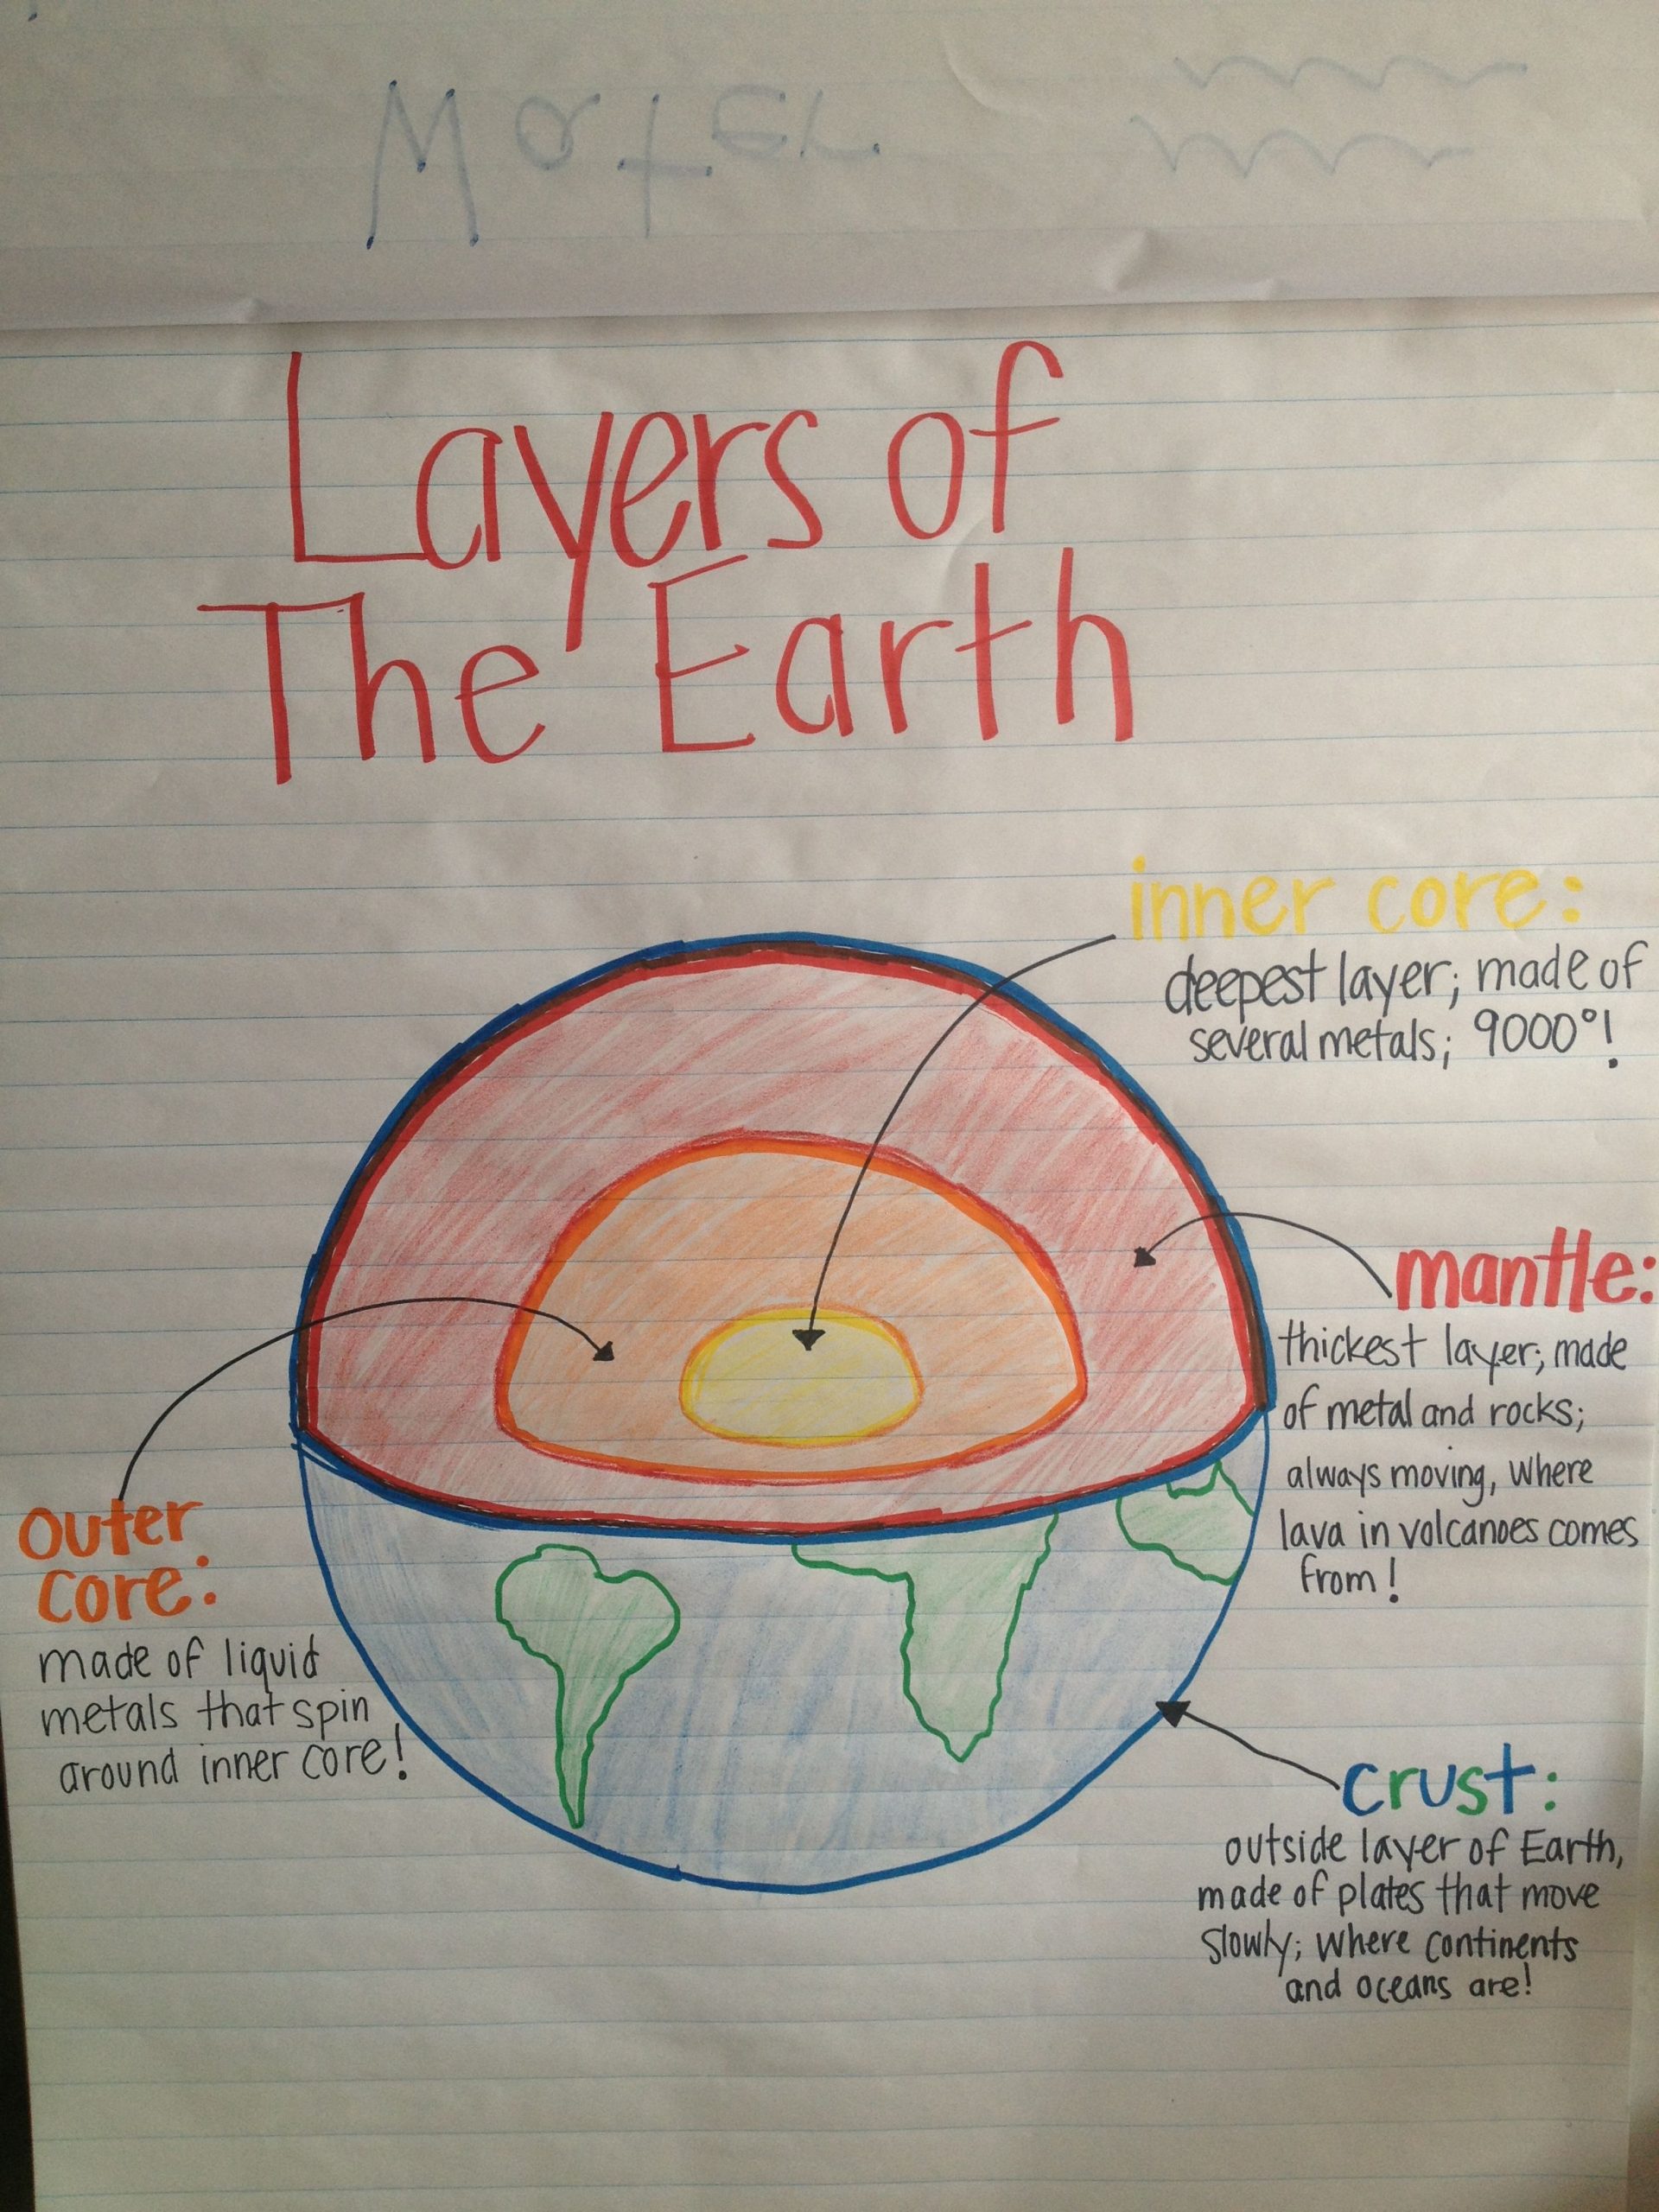 Water
Layers of
The Earth
inner core:
deepest layer; made of
several metals; 9000°!
mantle:
thickest layer; made
of metal and rocks;
always moving, where
lava in volcanoes comes
from!
outer
core:
made of liquid
metals that spin
around inner core!
crust:
outside layer of Earth,
made of plates that move
slowly; where continents
and oceans are!